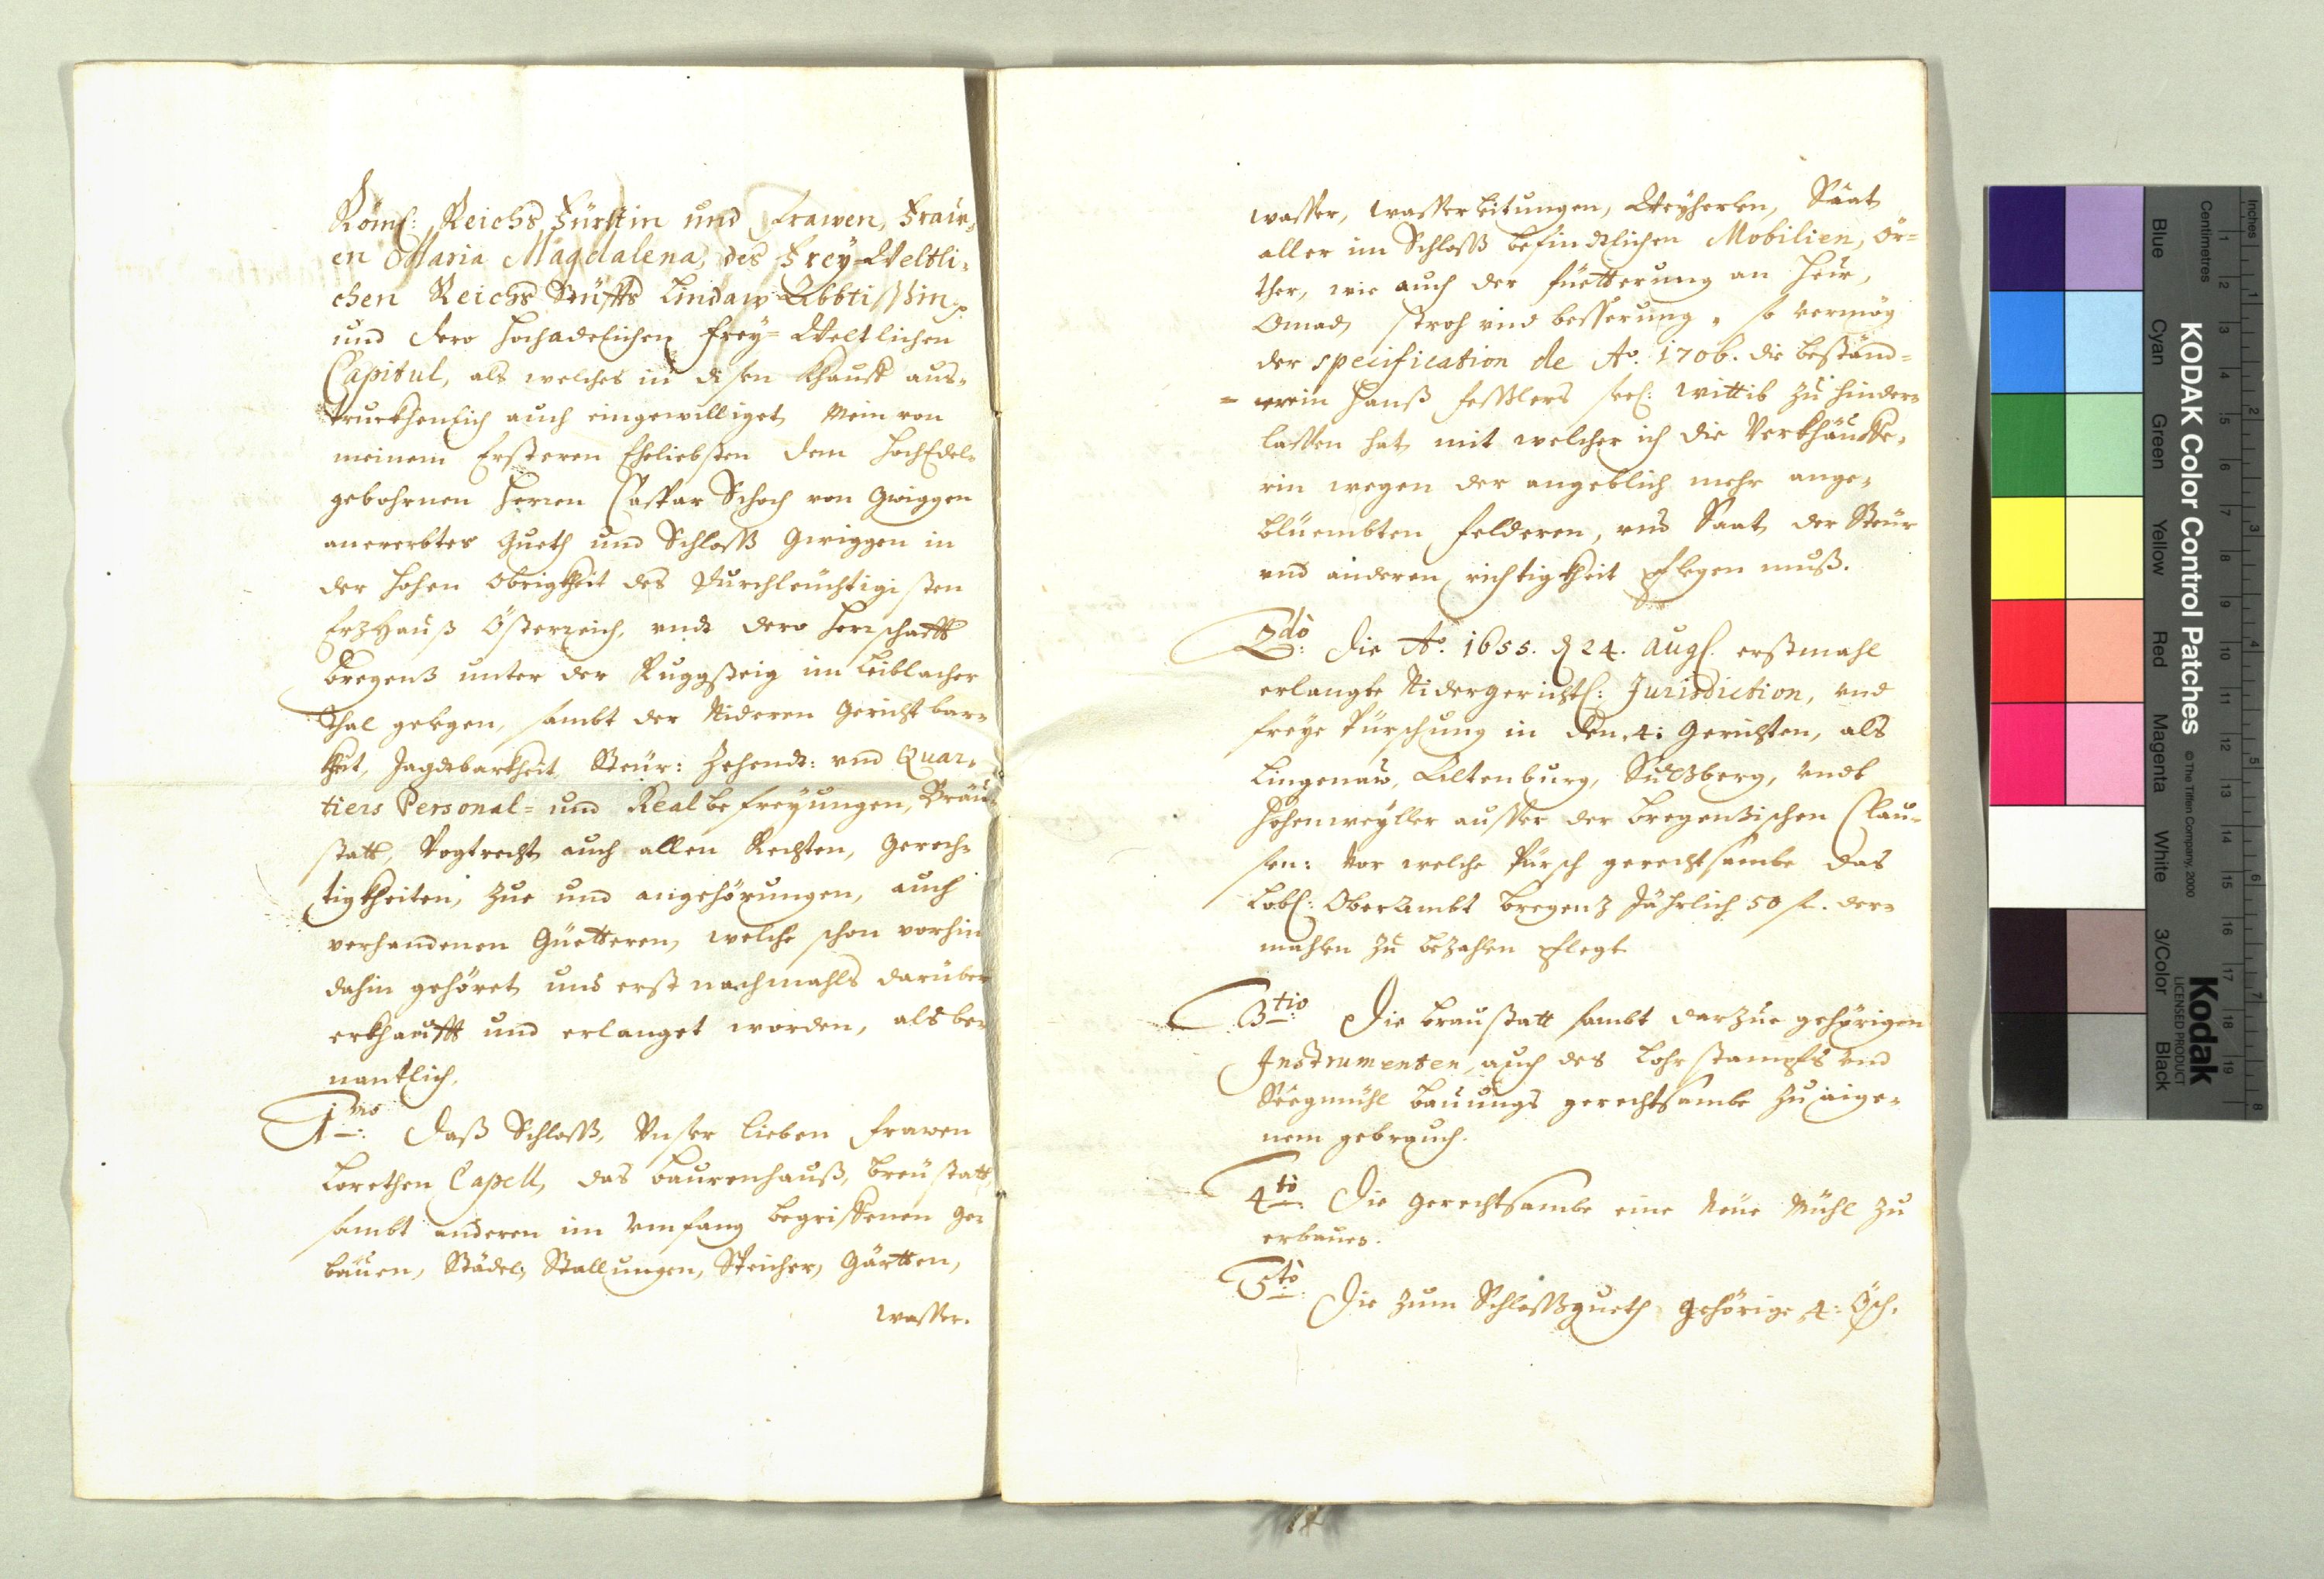 Röm: Reichs Fürstin und Frawen, Fraw-
en Maria Magdalena, des Frey-Weltli-
chen Reichs Stüffts Lindaw Abbtissin,
und dero Hochadelichen Frey-Weltlichen
Capitul, als welches in disen Khauff aus-
truckhenlich auch eingewilliget, Mein von
meinem Ersteren Eheliebsten dem HochEdel-
gebohrnen Herren Caspar Schoch von Gwiggen
anererbtes Gueth und Schloß Gwiggen in
der Hohen Obrigkheit des Durchleüchtigisten
ErzHauß Österreich, vndt dero Herrschafft
Bregenz unter der Ruggsteig im Leiblacher
Thal gelegen, sambt der Nideren Gerichtbar-
kheit, Jagdbarkheit, Steür: Zehendt: vnd Quar-
tiers Personal- und Real befreyungen, Bräu-
statt, Vogtrecht, auch allen Rechten, Gerech-
tigkheiten, Zue und angehörungen, auch
verhandenen Güetteren, welche schon vorhin
dahin gehöret, und erst nachmahls darüber
erkhaufft und erlanget worden, als be-
nantlich.
1mo: Daß Schloß, Unser lieben Frawen
Lorethen Capell, das Baurenhauß, Breüstatt,
sambt anderen im Umfang begriffenen Ge-
bäuen, Städel, Stallungen, Speicher, Gärtten,
wasser.
wasser, wasserleitungen, Weyherlen, Säat
aller im Schloß befindtlichen Mobilien, Ör-
ther, wie auch der füetterung an Heüw,
Omad, stroh vnd besserung, so vermög
der specification de Ao. 1706. die beständ-
nerin Hanß Feßlers seel: wittib zu hinder-
lassen hat, mit welcher ich die Verkhäuffe-
rin wegen der angeblich mehr ange-
blüembten Felderen, und Saat, der Steür
vnd anderen richtigkheit pflegen muß.
2do: Die Ao. 1655. d 24. Aug. erstmahl
erlangte Nidergerichtl: Jurisdiction, vnd
freye Pürschung in den 4: Gerichten, als
Lingenaw, Altenburg, Sulzberg, vndt
Hohenweyller ausser der Bregenzischen Clau-
sen: Vor welche Pürsch gerechtsambe das
Lobl: OberAmbt Bregenz Jährlich 50 f. der-
mahlen zu bezahlen pflegt.
3tio: Die Braustatt sambt darzue gehörigen
Instrumenten, auch des Lohrstampfs vnd
Seegmühl Bauungs gerechtsambe zu aige-
nem gebrauch.
4to: Die Gerechtsambe eine Neüe Mühl zu
erbauen.
5to: Die zum Schloßgueth gehörige 4: Ösch.
KODAK Color Control Patches
© The Tiffen Company, 2000
Kodak
LICENSED PRODUCT
Blue
Cyan
Green
Yellow
Red
Magenta
White
3/Color
Black
Centimetres
Inches